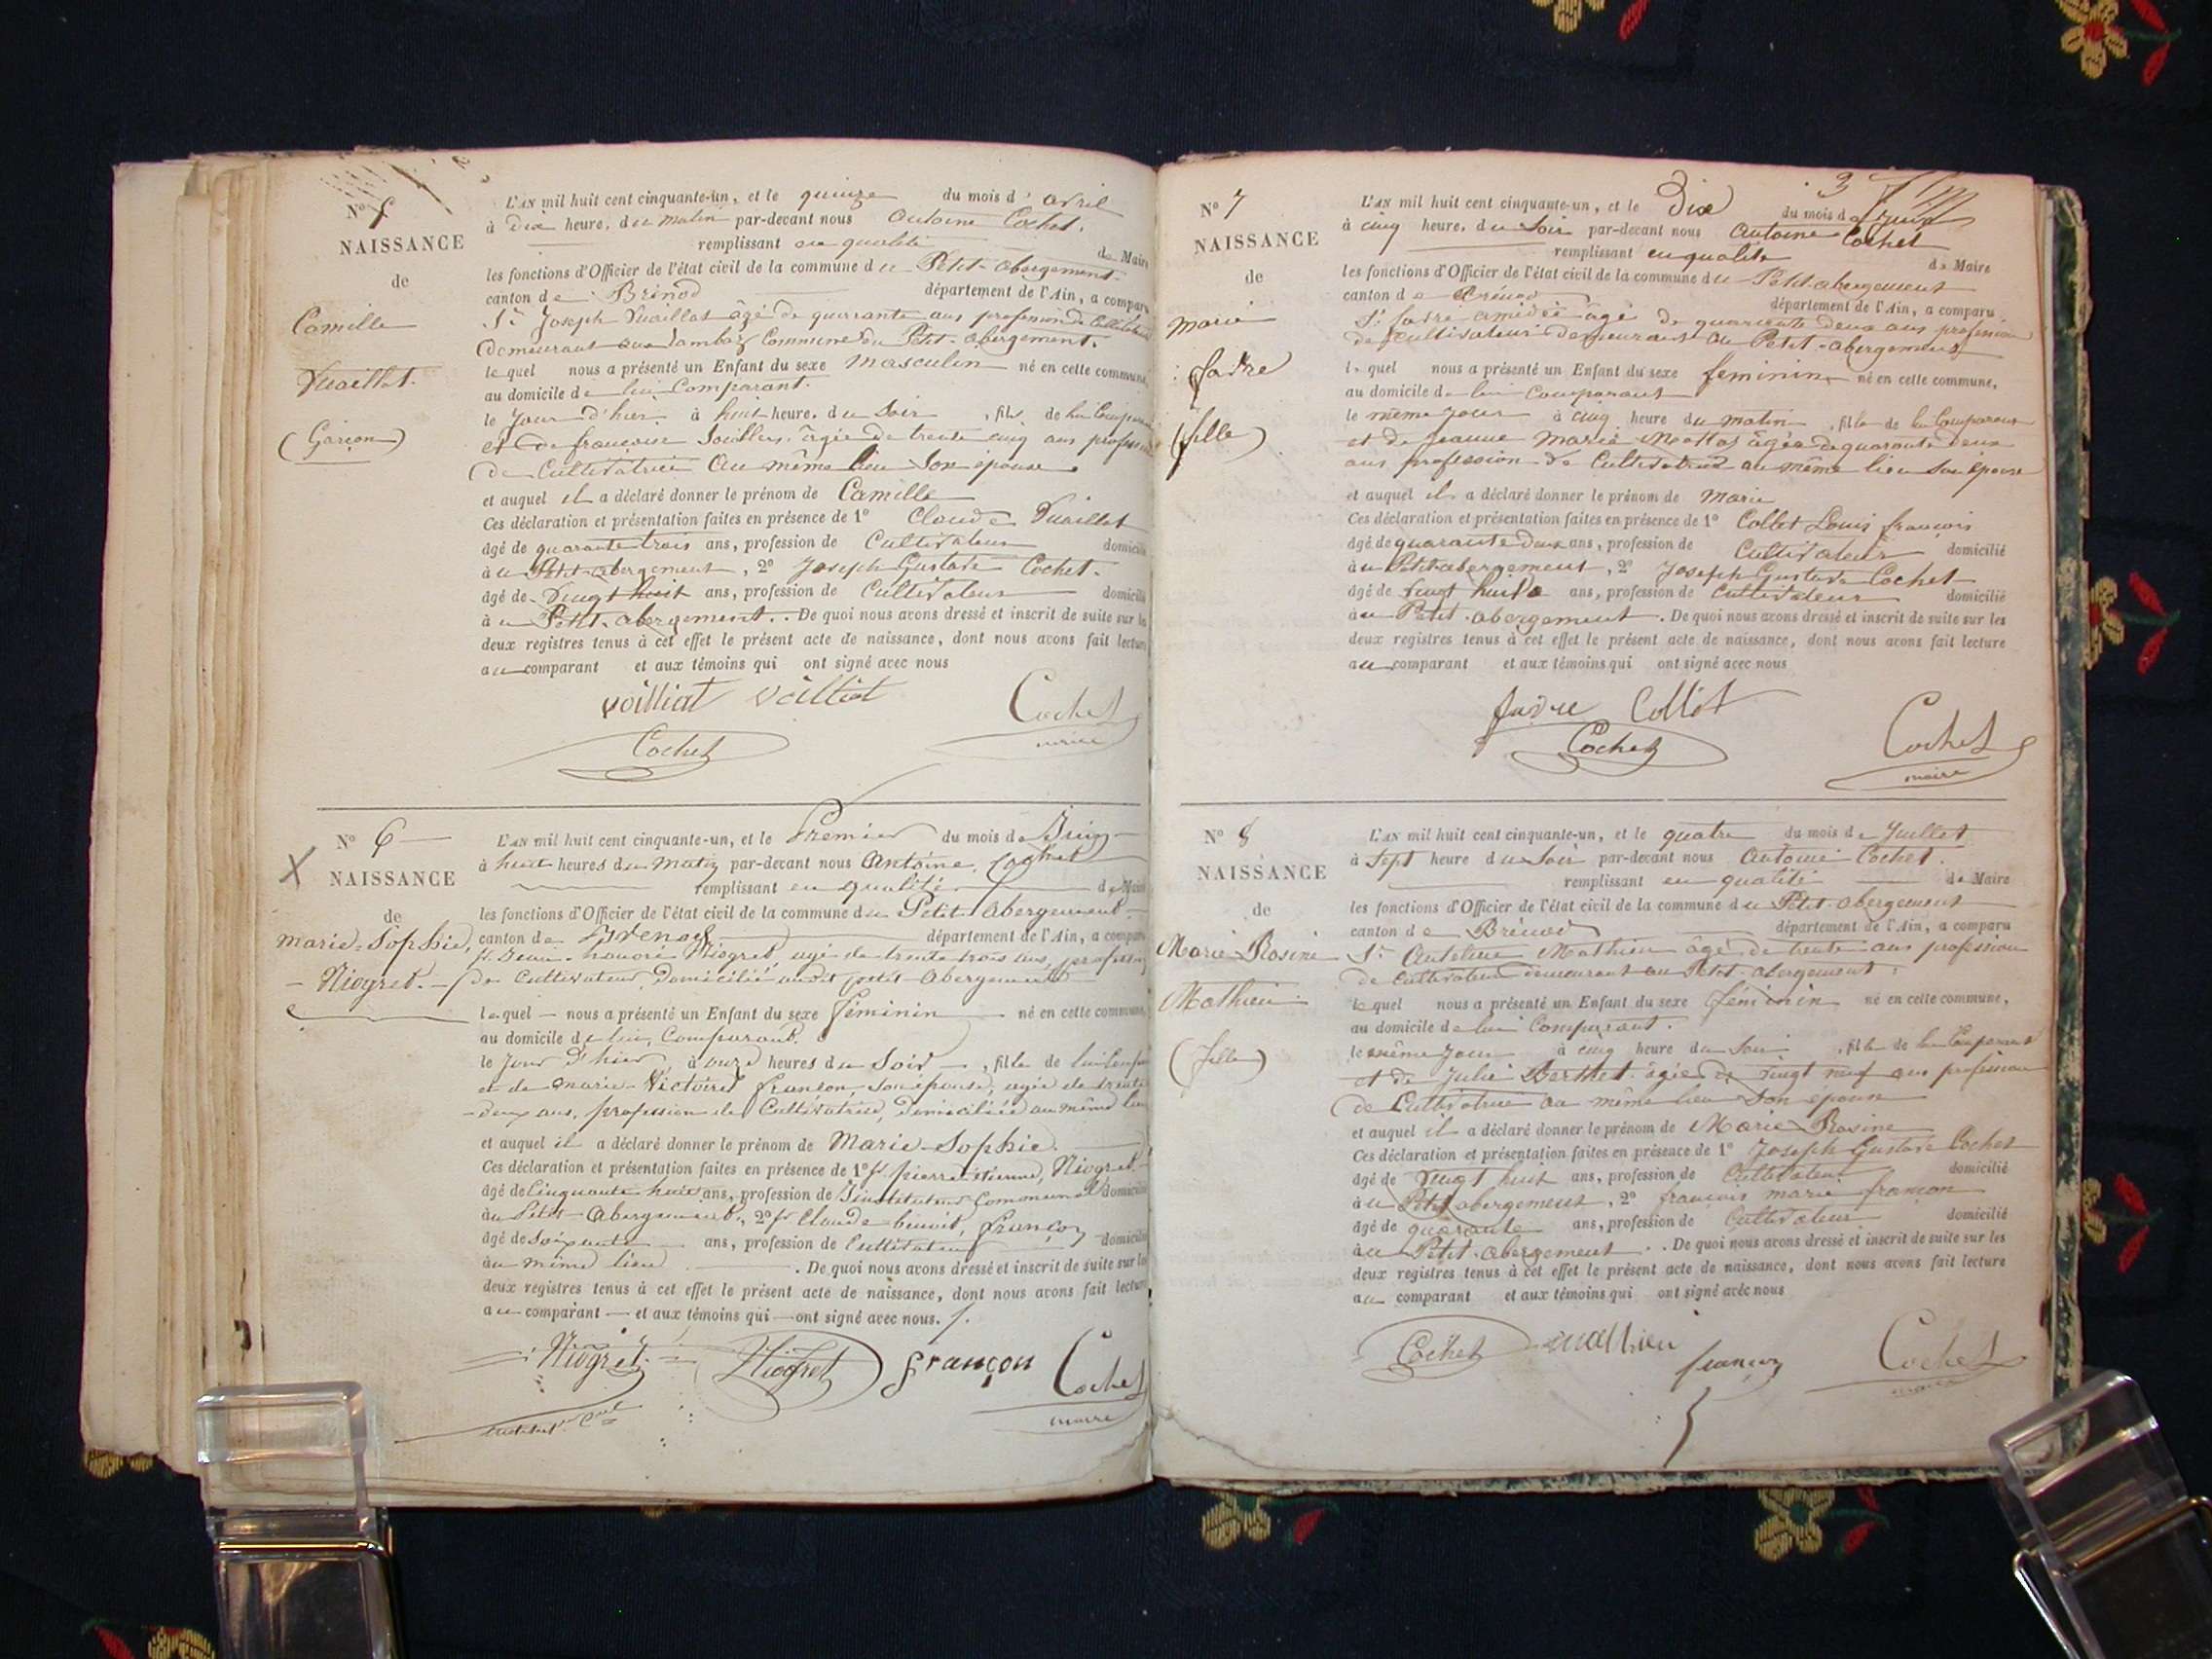 N° 5
NAISSANCE
de
Camille
Vuaillat.
(Garçon)
L'AN mil huit cent cinquante-un, et le quinze du mois d'avril
à dix heure. du matin par-devant nous Antoine Cochet.
remplissant en qualité de Maire
les fonctions d'Officier de l'état civil de la commune du Petit-abergement
canton de Brénod département de l'Ain, a comparu
Sr Joseph Vuaillat âgé de quarante ans profession de Cultivateur
demeurant aux Commune du Petit-abergement.
lequel nous a présenté un Enfant du sexe masculin né en cette commune,
au domicile de lui Comparant.
le jour d'hier à huit heure. du soir , fils de lui Comparant
et de françoise âgée de trente cinq ans profession
de Cultivatrice au même lieu son épouse.
et auquel il a déclaré donner le prénom de Camille
Ces déclaration et présentation faites en présence de 1° Claude Vuaillat
âgé de quarante trois ans, profession de Cultivateur domicilié
à u Petit-abergement, 2° Joseph Gustave Cochet.
âgé de Vingt huit ans, profession de Cultivateur domicilié
à u Petit-abergement. . De quoi nous avons dressé et inscrit de suite sur les
deux registres tenus à cet effet le présent acte de naissance, dont nous avons fait lecture
au comparant et aux témoins qui ont signé avec nous
voilliat voilliat Cochet
Cochet maire
N° 6
NAISSANCE
de
Marie-Sophie,
Niogret.
L'AN mil huit cent cinquante-un, et le Premier du mois de Juin
à huit heures du matin par-devant nous Antoine, Cochet
remplissant en qualité de Maire
les fonctions d'Officier de l'état civil de la commune du Petit abergement
canton de Brénod département de l'Ain, a comparu
Sr Jean-honoré Niogret, agé de trente trois ans, profession
de Cultivateur, Domicilié audit petit abergement
lequel nous a présenté un Enfant du sexe féminin né en cette commune,
au domicile de lui, Comparant.
le jour d'hier, à onze heures du Soir , fille de lui Comparant
et de marie-Victoire françon, son épouse, agée de trente
-deux ans, profession de Cultivatrice, Domiciliée au même lieu
et auquel il a déclaré donner le prénom de Marie-Sophie.
Ces déclaration et présentation faites en présence de 1° Sr pierre-étienne, Niogret
âgé de Cinquante huit ans, profession de Instituteur Communal domicilié
à u Petit-Abergement, 2° Sr Claude benoit, françon
âgé de soixante ans, profession de Cultivateur domicilié
à u même lieu . De quoi nous avons dressé et inscrit de suite sur les
deux registres tenus à cet effet le présent acte de naissance, dont nous avons fait lecture
au comparant et aux témoins qui ont signé avec nous.
Niogret Niogret françon Cochet
maire
N° 7
NAISSANCE
de
marie
fadre
(fille)
3
L'AN mil huit cent cinquante-un, et le Dix du mois de juin
à cinq heure. du Soir par-devant nous Antoine Cochet
remplissant en qualité de Maire
les fonctions d'Officier de l'état civil de la commune du Petit-abergement
canton de Brénod département de l'Ain, a comparu
Sr fadre amédée âgé de quarante deux ans profession
de cultivateur demeurant au Petit-abergement
lequel nous a présenté un Enfant du sexe feminin né en cette commune,
au domicile de lui comparant
le même jour à cinq heure du matin , fille de lui Comparant
et de jeanne marie âgée de quarante deux
ans profession de Cultivatrice au même lieu son épouse
et auquel il a déclaré donner le prénom de marie
Ces déclaration et présentation faites en présence de 1° Collet Louis françois
âgé de quarante deux ans, profession de Cultivateur domicilié
à u Petit-abergement, 2° Joseph Gustave Cochet
âgé de vingt huit ans, profession de Cultivateur domicilié
à u Petit-abergement . De quoi nous avons dressé et inscrit de suite sur les
deux registres tenus à cet effet le présent acte de naissance, dont nous avons fait lecture
au comparant et aux témoins qui ont signé avec nous
fadre Collet
Cochet Cochet
maire
N° 8
NAISSANCE
de
Marie Rosine
Mathieu
(fille)
L'AN mil huit cent cinquante-un, et le quatre du mois de Juillet
à sept heure du Soir par-devant nous Antoine Cochet.
remplissant en qualité de Maire
les fonctions d'Officier de l'état civil de la commune du Petit abergement
canton de Brénod département de l'Ain, a comparu
Sr Anthelme Mathieu âgé de trente ans profession
de cultivateur demeurant au Petit-abergement
lequel nous a présenté un Enfant du sexe féminin né en cette commune,
au domicile de lui Comparant.
le même jour à cinq heure du Soir , fille de lui Comparant
et de Julie Berthet âgée de vingt neuf ans profession
de Cultivatrice au même lieu son épouse
et auquel il a déclaré donner le prénom de Marie Rosine
Ces déclaration et présentation faites en présence de 1° Joseph Gustave Cochet
âgé de Vingt huit ans, profession de Cultivateur domicilié
à u Petit abergement, 2° françois marie françon
âgé de quarante ans, profession de Cultivateur domicilié
à u Petit-abergement . . De quoi nous avons dressé et inscrit de suite sur les
deux registres tenus à cet effet le présent acte de naissance, dont nous avons fait lecture
au comparant et aux témoins qui ont signé avec nous
Cochet mathieu françon Cochet
maire